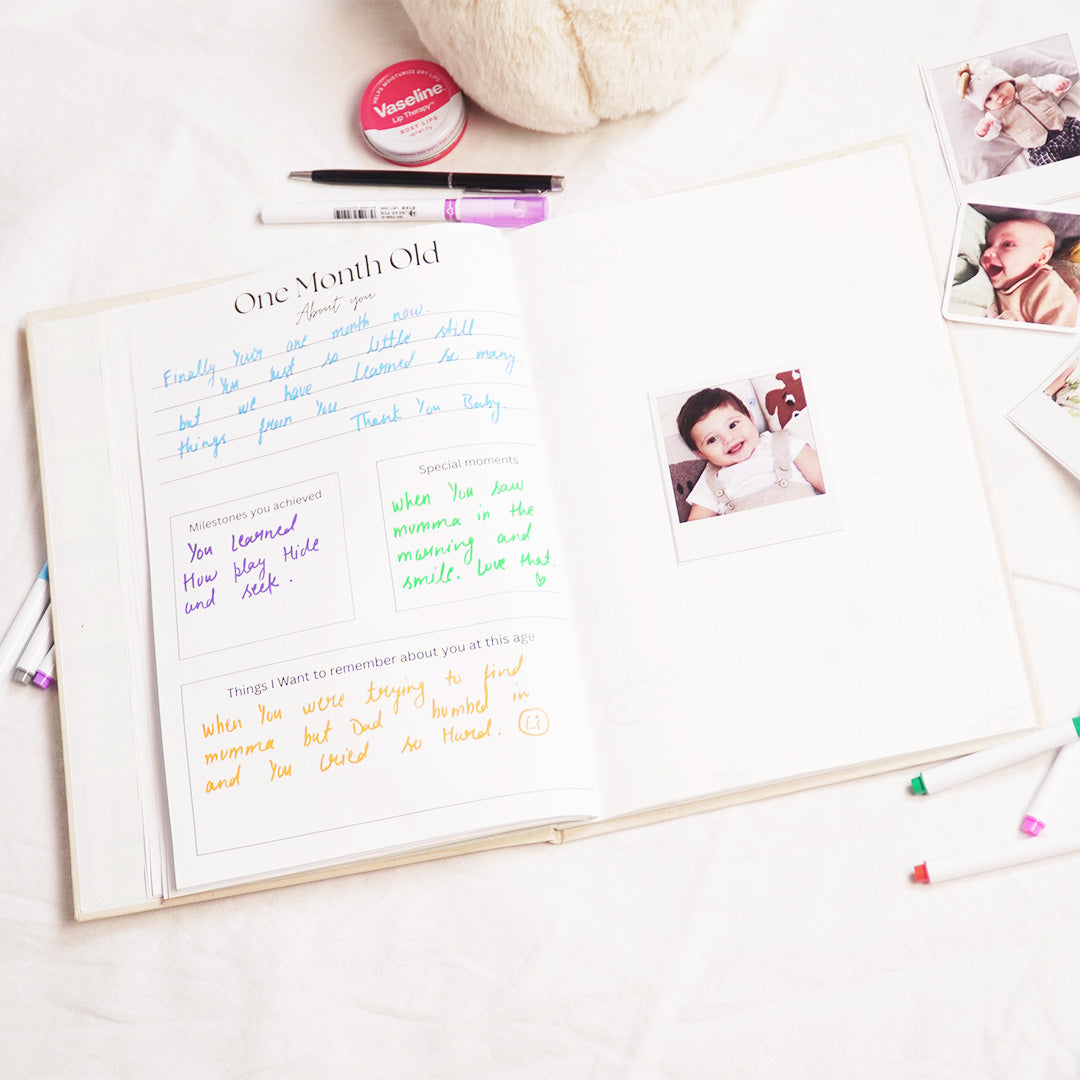 HELPS MOISTURIZE DRY LIPS
Vaseline
Lip Therapy™
ROSY LIPS
One Month Old
About you
Finally Your one month now.
You just so little still
but we have learned so many
things from You. Thank You Baby.
Milestones you achieved
You learned
How play Hide
and seek.
Special moments
when You saw
mumma in the
morning and
smile. Love that.
Things I Want to remember about you at this age
when You were trying to find
mumma but Dad bumbed in
and You cried so Hard.